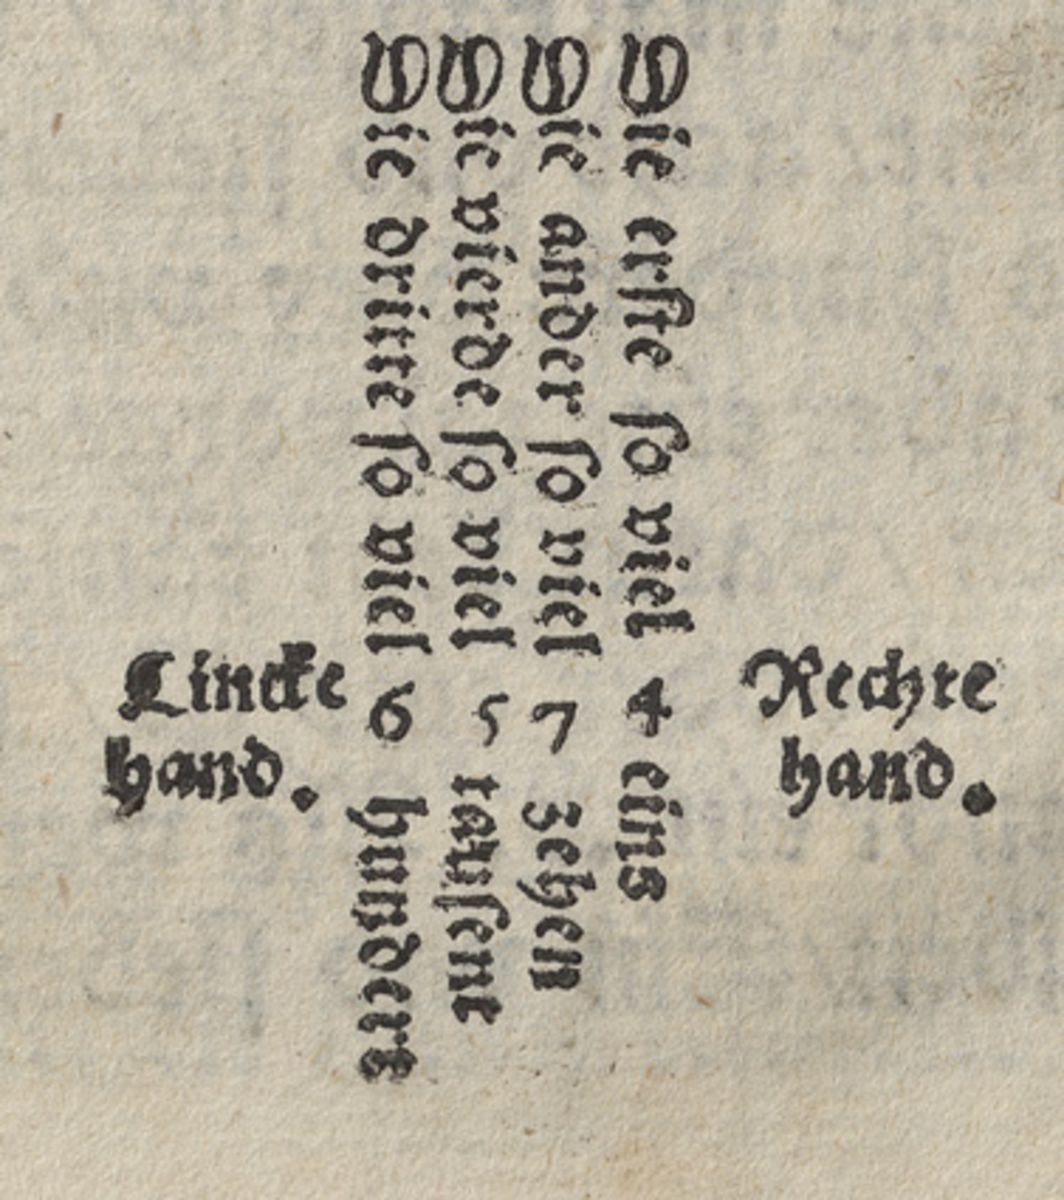 Die erste so viel 4 eins
Die ander so viel 7 zehen
Die vierde so viel 5 tausent
Die dritte so viel 6 hundert
Lincke
hand.
Rechte
hand.